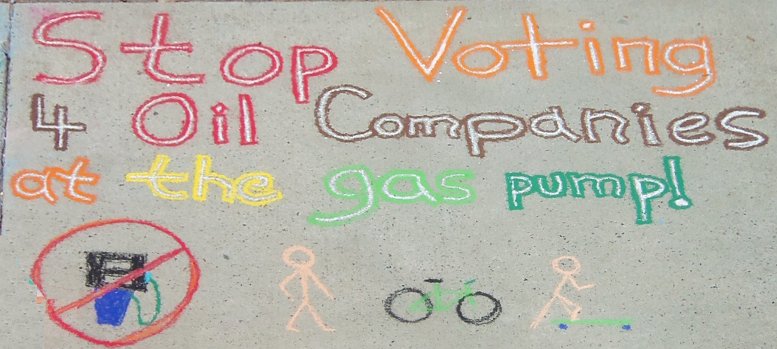 Stop Voting
4 Oil Companies
at the gas pump!